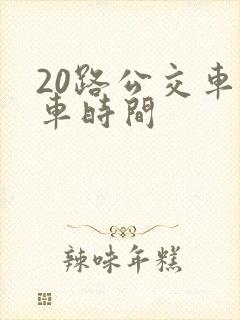 20路公交車
車時間
辣味年糕